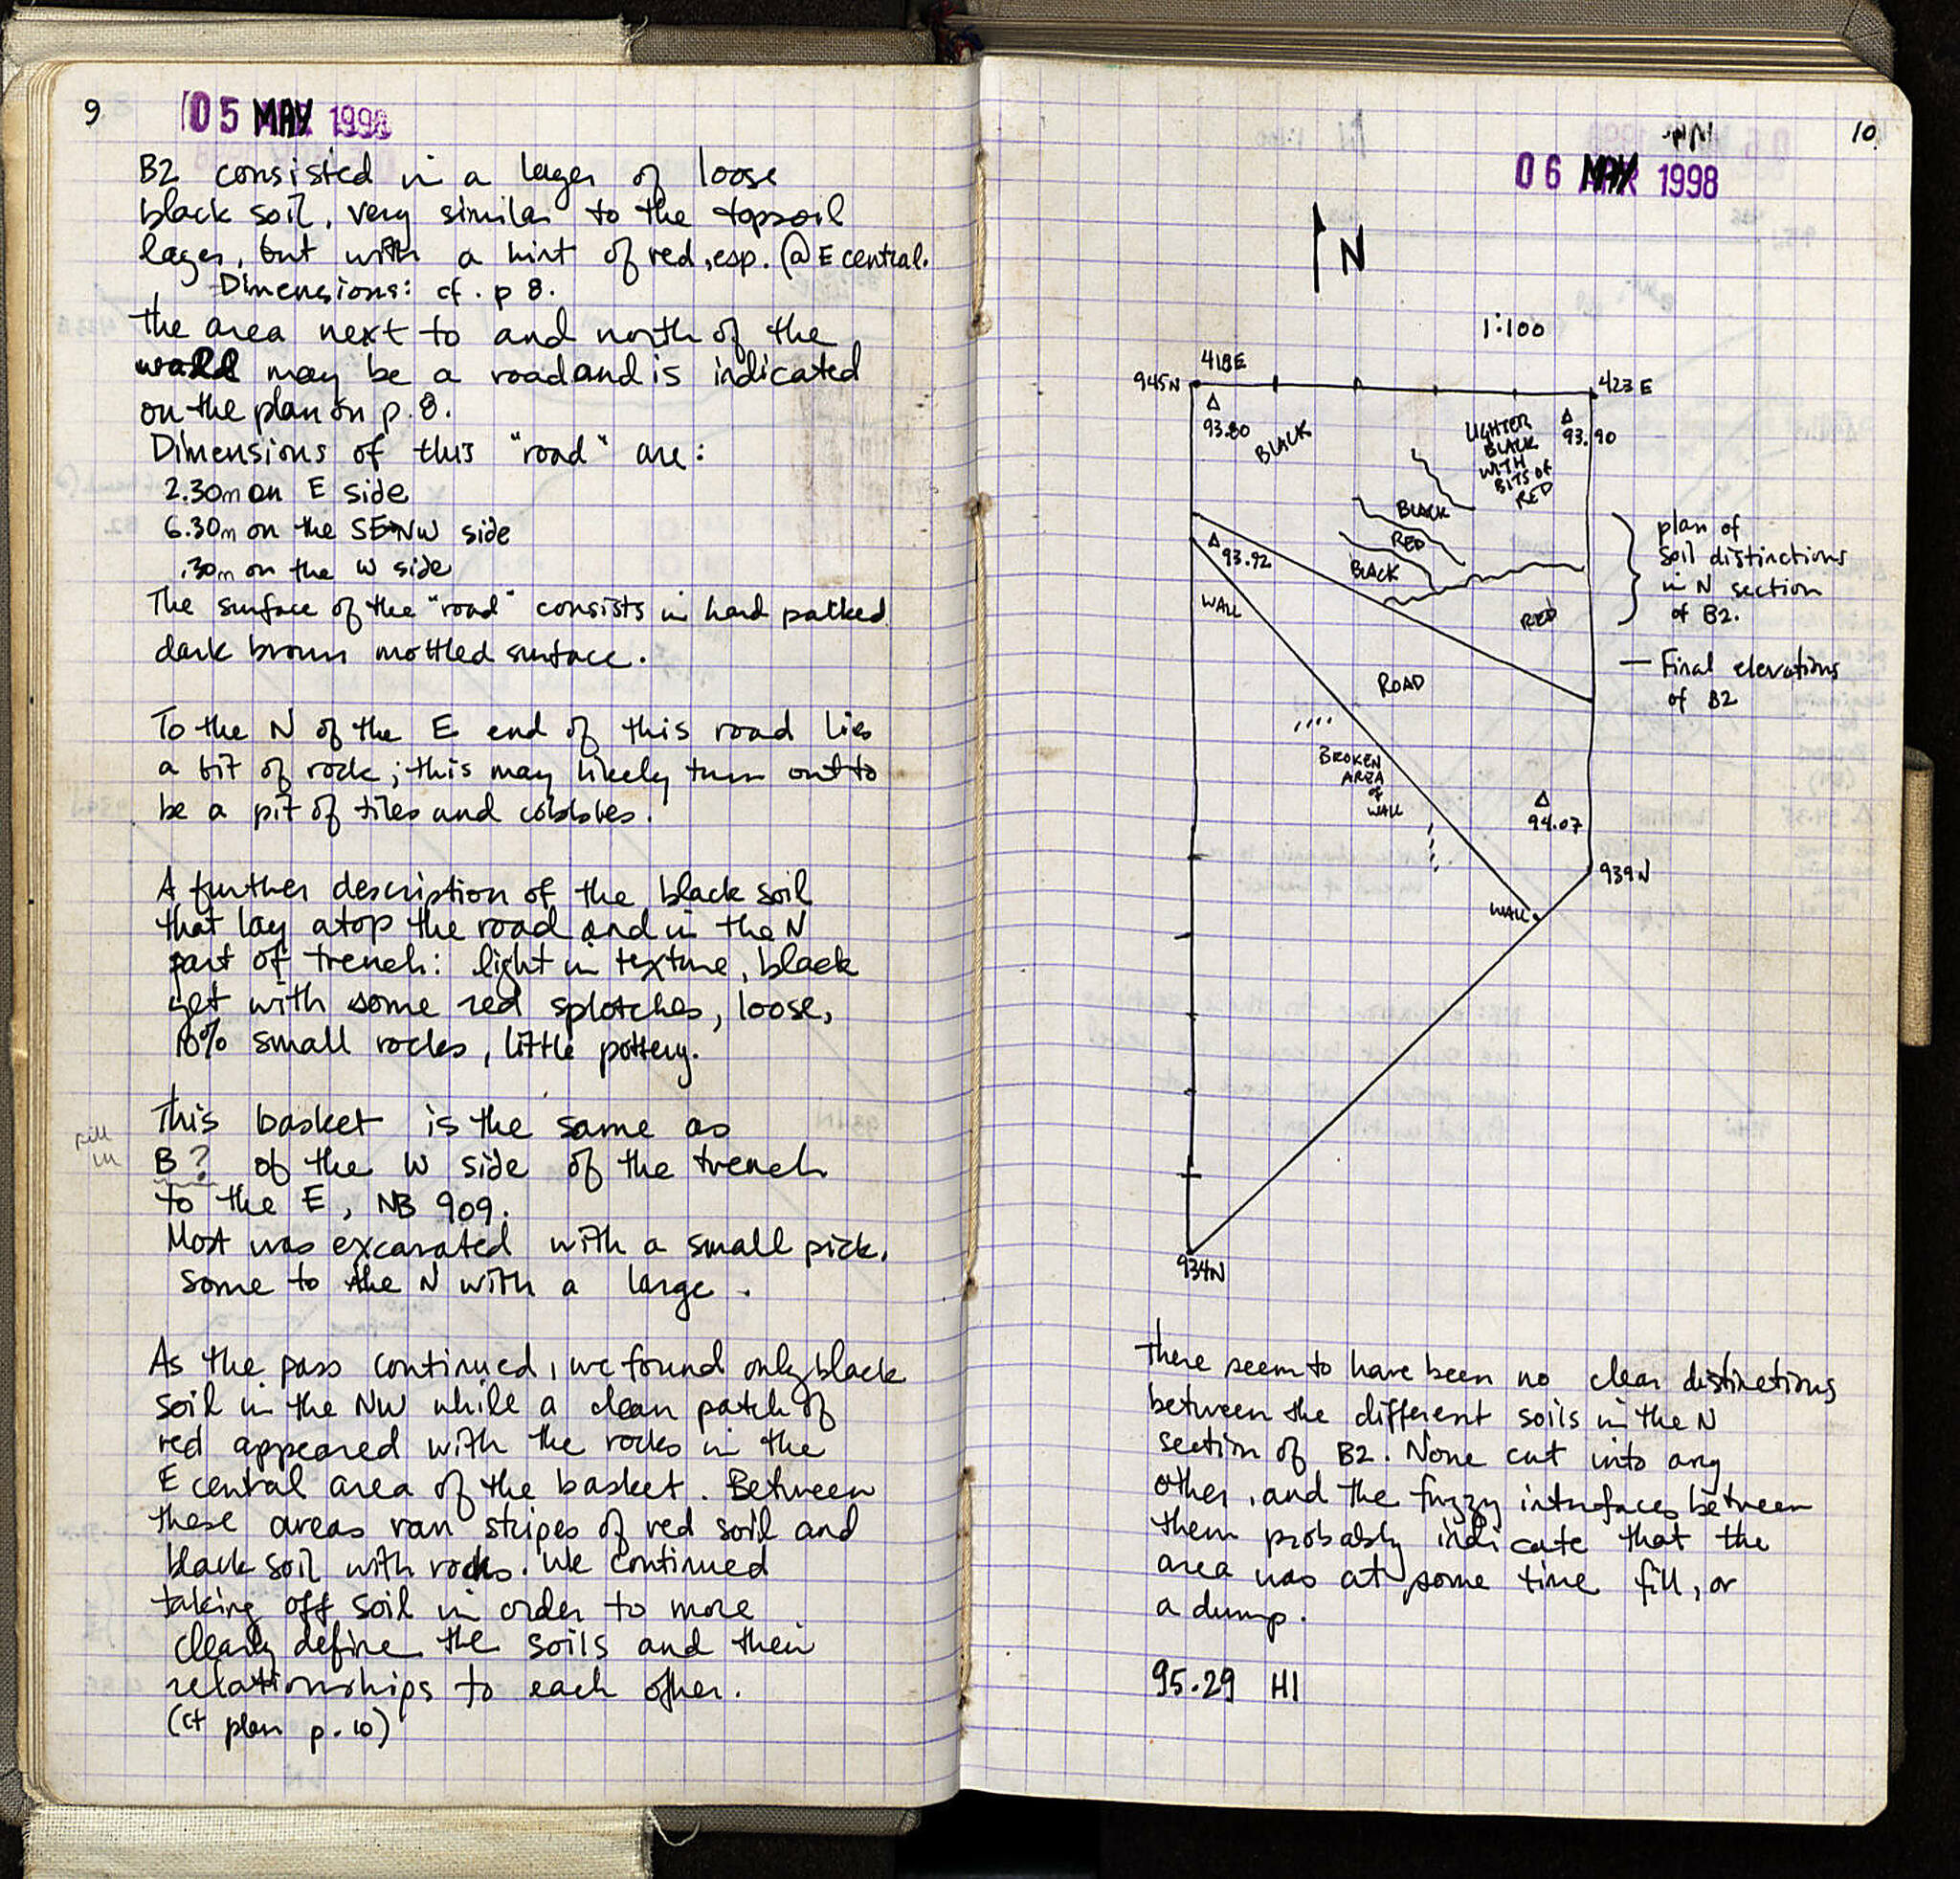 9
05 MAY 1998
B2 consisted in a layer of loose
black soil, very similar to the topsoil
layer, but with a hint of red, esp. @ E central.
Dimensions: cf. p 8.
The area next to and north of the
wall may be a road and is indicated
on the plan on p. 8.
Dimensions of this "road" are:
2.30m on E side
6.30m on the SE-NW side
.30m on the W side
The surface of the "road" consists in hard packed
dark brown mottled surface.
To the N of the E end of this road lies
a bit of rock; this may likely turn out to
be a pit of tiles and cobbles.
A further description of the black soil
that lay atop the road and in the N
part of trench: light in texture, black
yet with some red splotches, loose,
10% small rocks, little pottery.
This basket is the same as
fill
in
B ? of the W side of the trench
to the E, NB 909.
Most was excavated with a small pick,
some to the N with a large.
As the pass continued, we found only black
soil in the NW while a clean patch of
red appeared with the rocks in the
E central area of the basket. Between
these areas ran stripes of red soil and
black soil with rocks. We continued
taking off soil in order to more
clearly define the soils and their
relationships to each other.
(cf plan p. 10)
10
06 MAY 1998
N
1:100
418E
945N
423 E
93.80
BLACK
LIGHTER
BLACK
WITH
BITS OF
RED
93.90
BLACK
RED
BLACK
93.92
WALL
RED
plan of
soil distinctions
in N section
of B2.
— Final elevations
of B2
ROAD
BROKEN
AREA
of
WALL
94.07
939N
WALL
934N
There seem to have been no clear distinctions
between the different soils in the N
section of B2. None cut into any
other, and the fuzzy interfaces between
them probably indicate that the
area was at some time fill, or
a dump.
95.29 HI